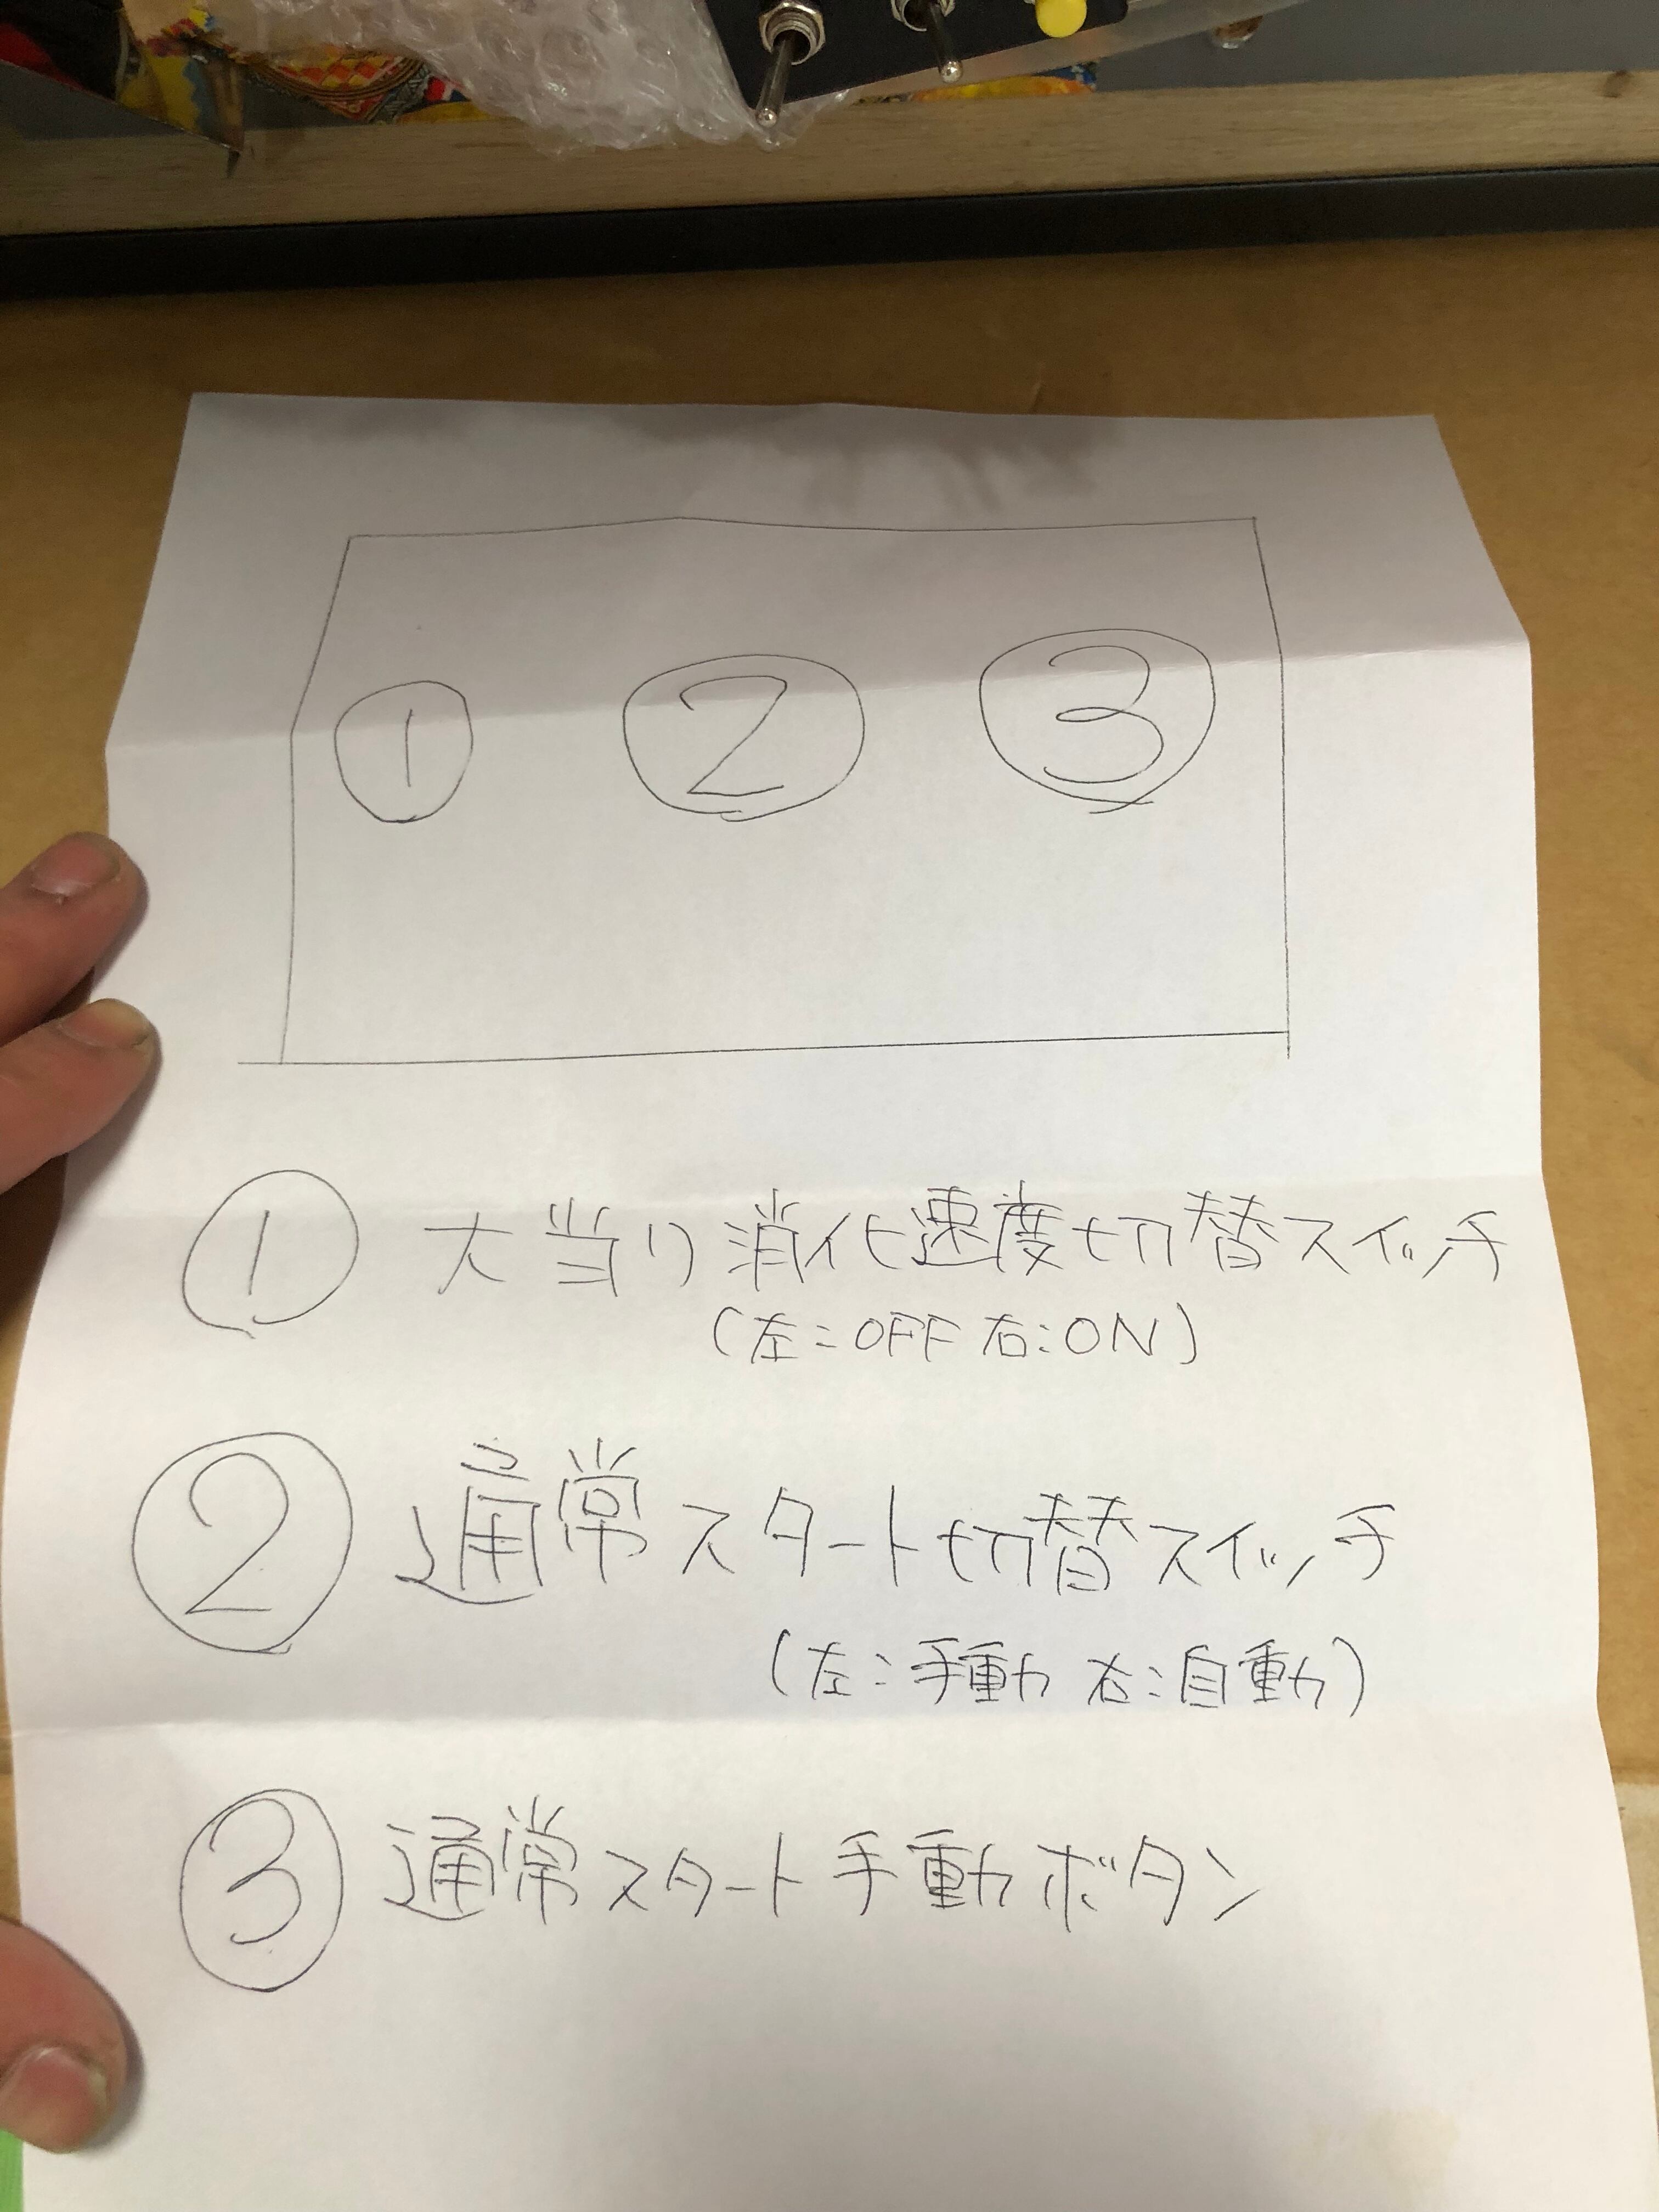 ① ② ③
① 大当り消化速度切替スイッチ
(左:OFF 右:ON)
② 通常スタート切替スイッチ
(左:手動 右:自動)
③ 通常スタート手動ボタン